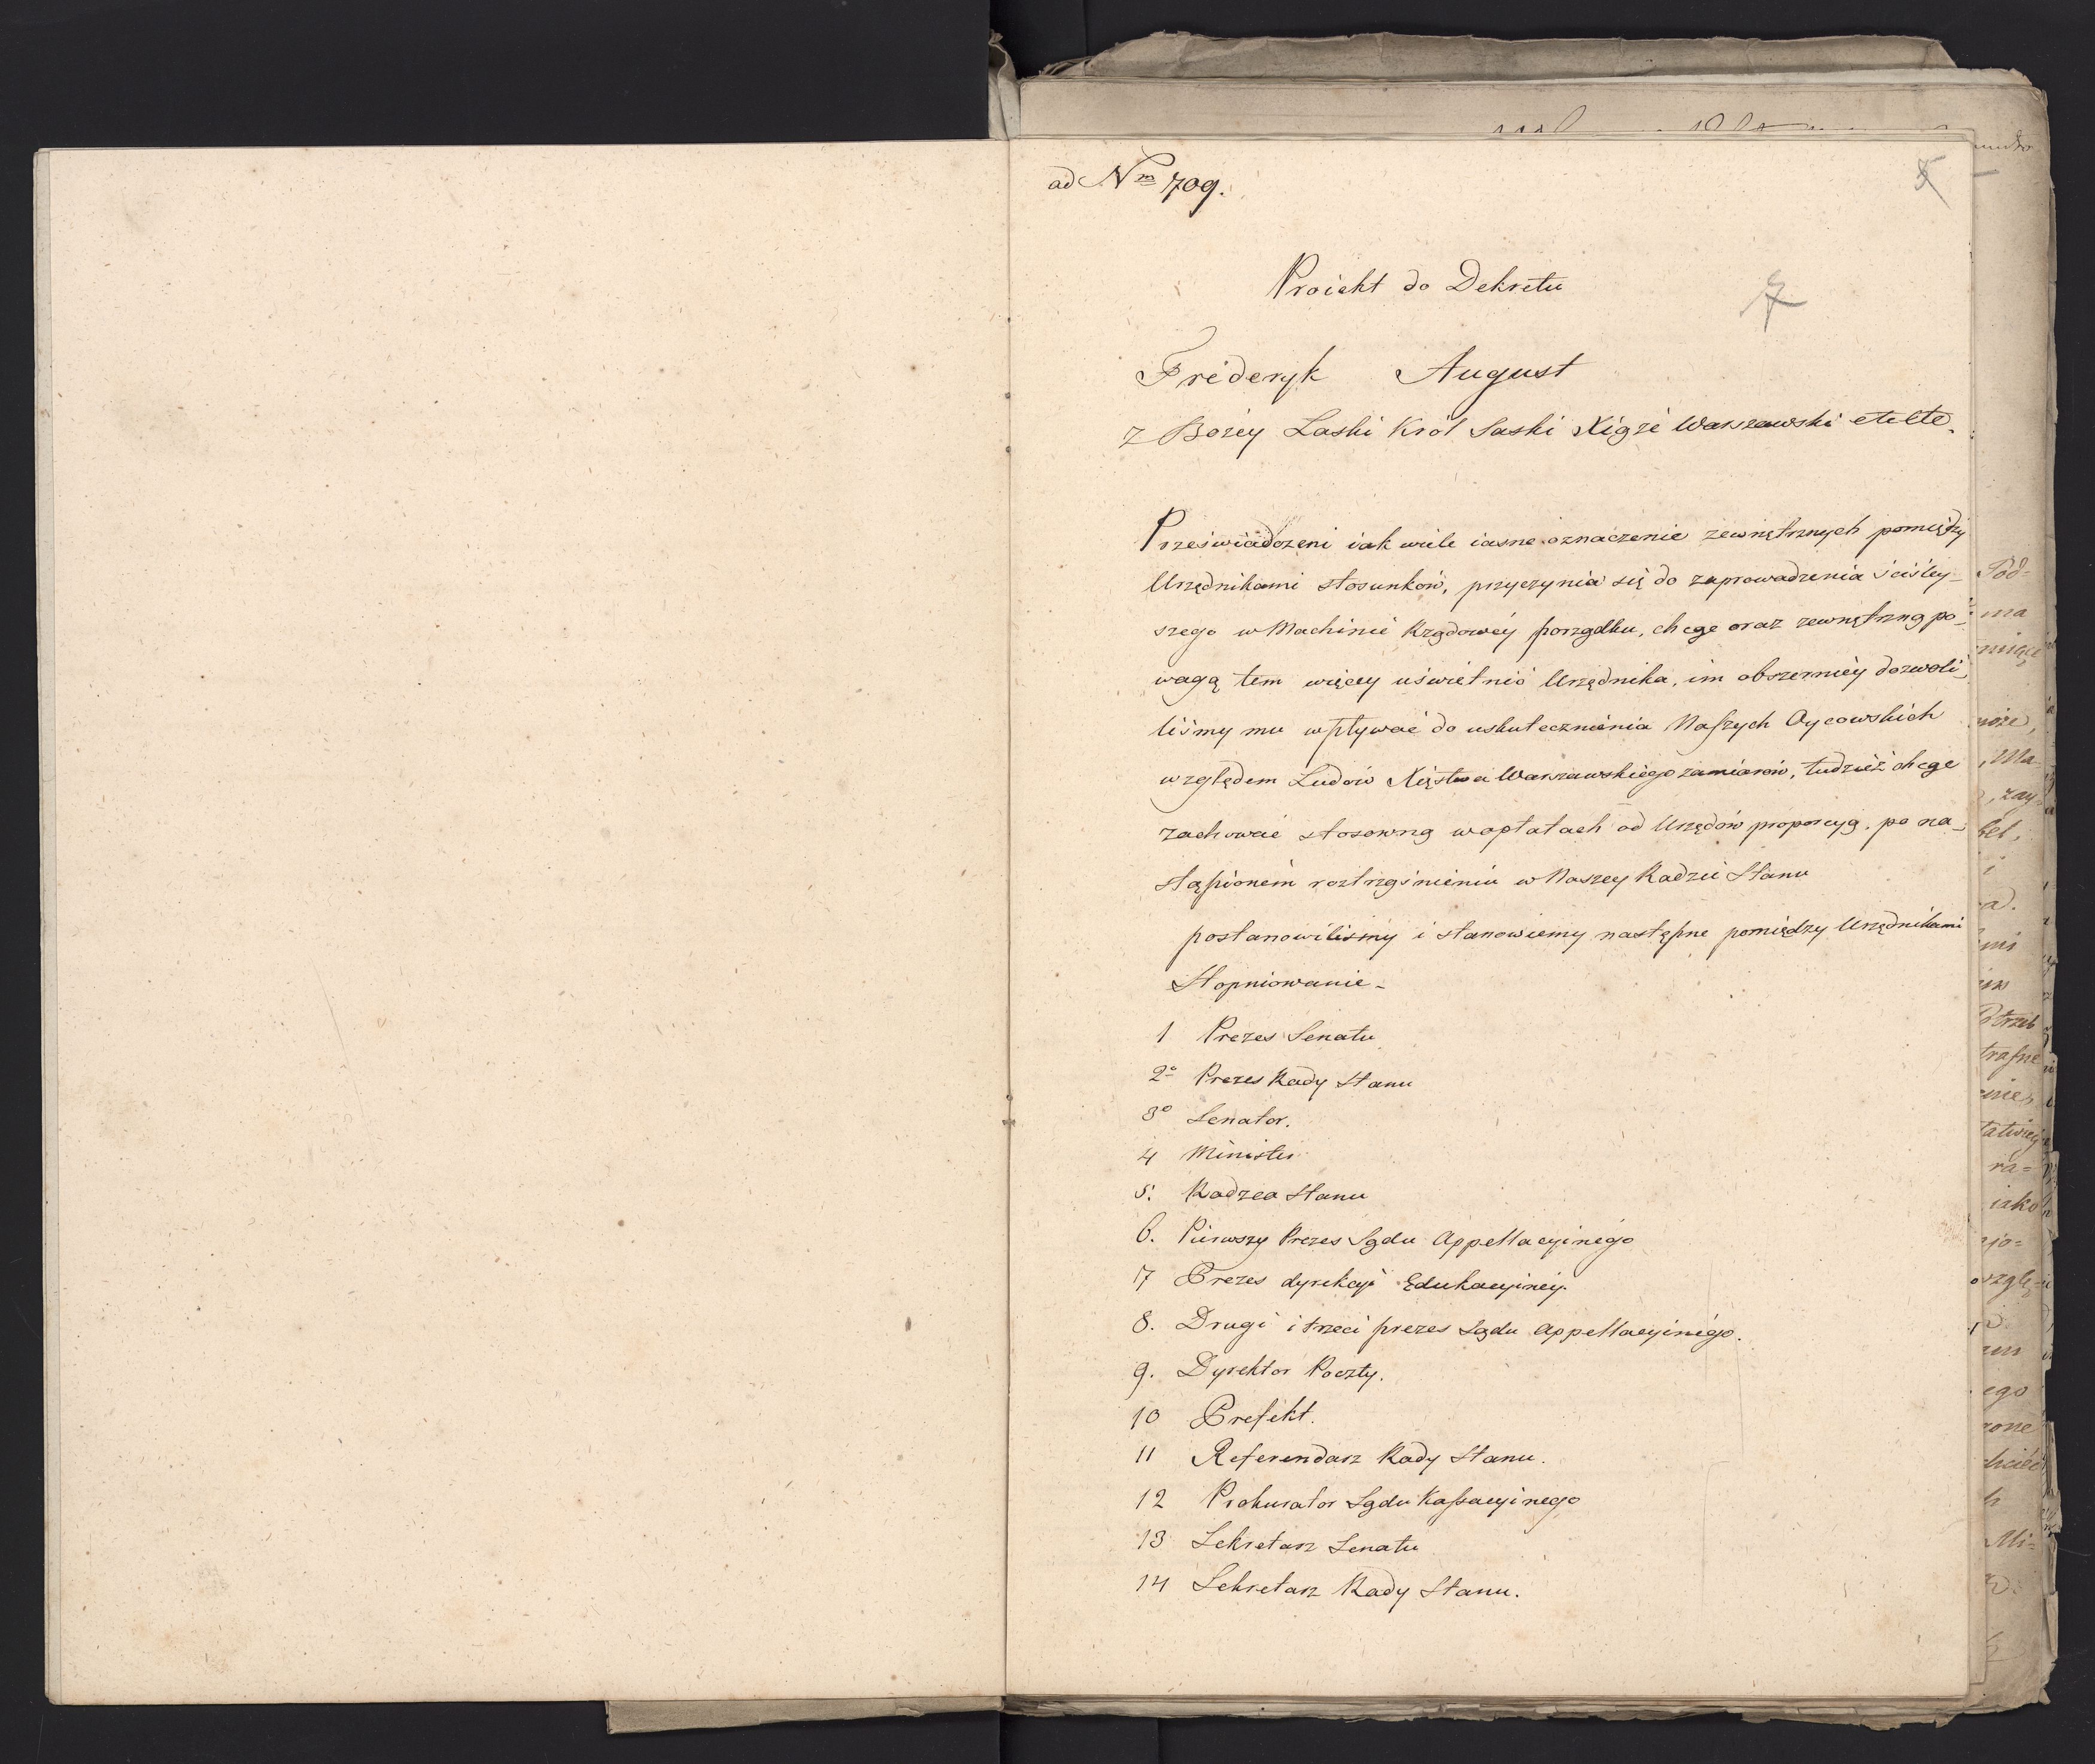 ad Nm 709.
Proiekt do Dekretu
7
Friderÿk August
z Bożéy Laski Król Saski Xiążé Warszawski etc etc.
Przeświadczeni iak wiele iasne oznaczenie zewnętrznych pomiędzy
Urzędnikami stosunków, przyczynia się do zaprowadzenia ściśley-
szego w Machinie Rządowéy porządku, chcąc oraz zewnętrzną po-
wagą tem więcey uświetnić Urzędnika, im obszerniéy dozwoli-
liśmy mu wpływać do uskutecznienia Naszych Oycowskich
względem Ludów Xięstwa Warszawskiego zamiarów, tudzież chcąc
zachować stosowną w opłatach od Urzędów proporcyą, po na-
stąpioném roztrząśnieniu w Naszey Radzie Stanu
postanowiliśmy i stanowiemy następne pomiędzy Urzędnikami
Stopniowanie-
1 Prezes Senatu
2o Prezes Rady Stanu
3o Senator.
4 Minister
5. Radzca Stanu
6. Pierwszy Prezes Sądu Appellacyinégo
7 Prezes dyrekcyi Edukacyinéy.
8. Drugi i trzeci prezes Sądu Appellacyinégo.
9. Dyrektor Poczty.
10 Prefekt.
11 Referendarz Rady Stanu.
12 Prokurator Sądu Kassacyinego
13 Sekretarz Senatu
14 Sekretarz Rady Stanu.